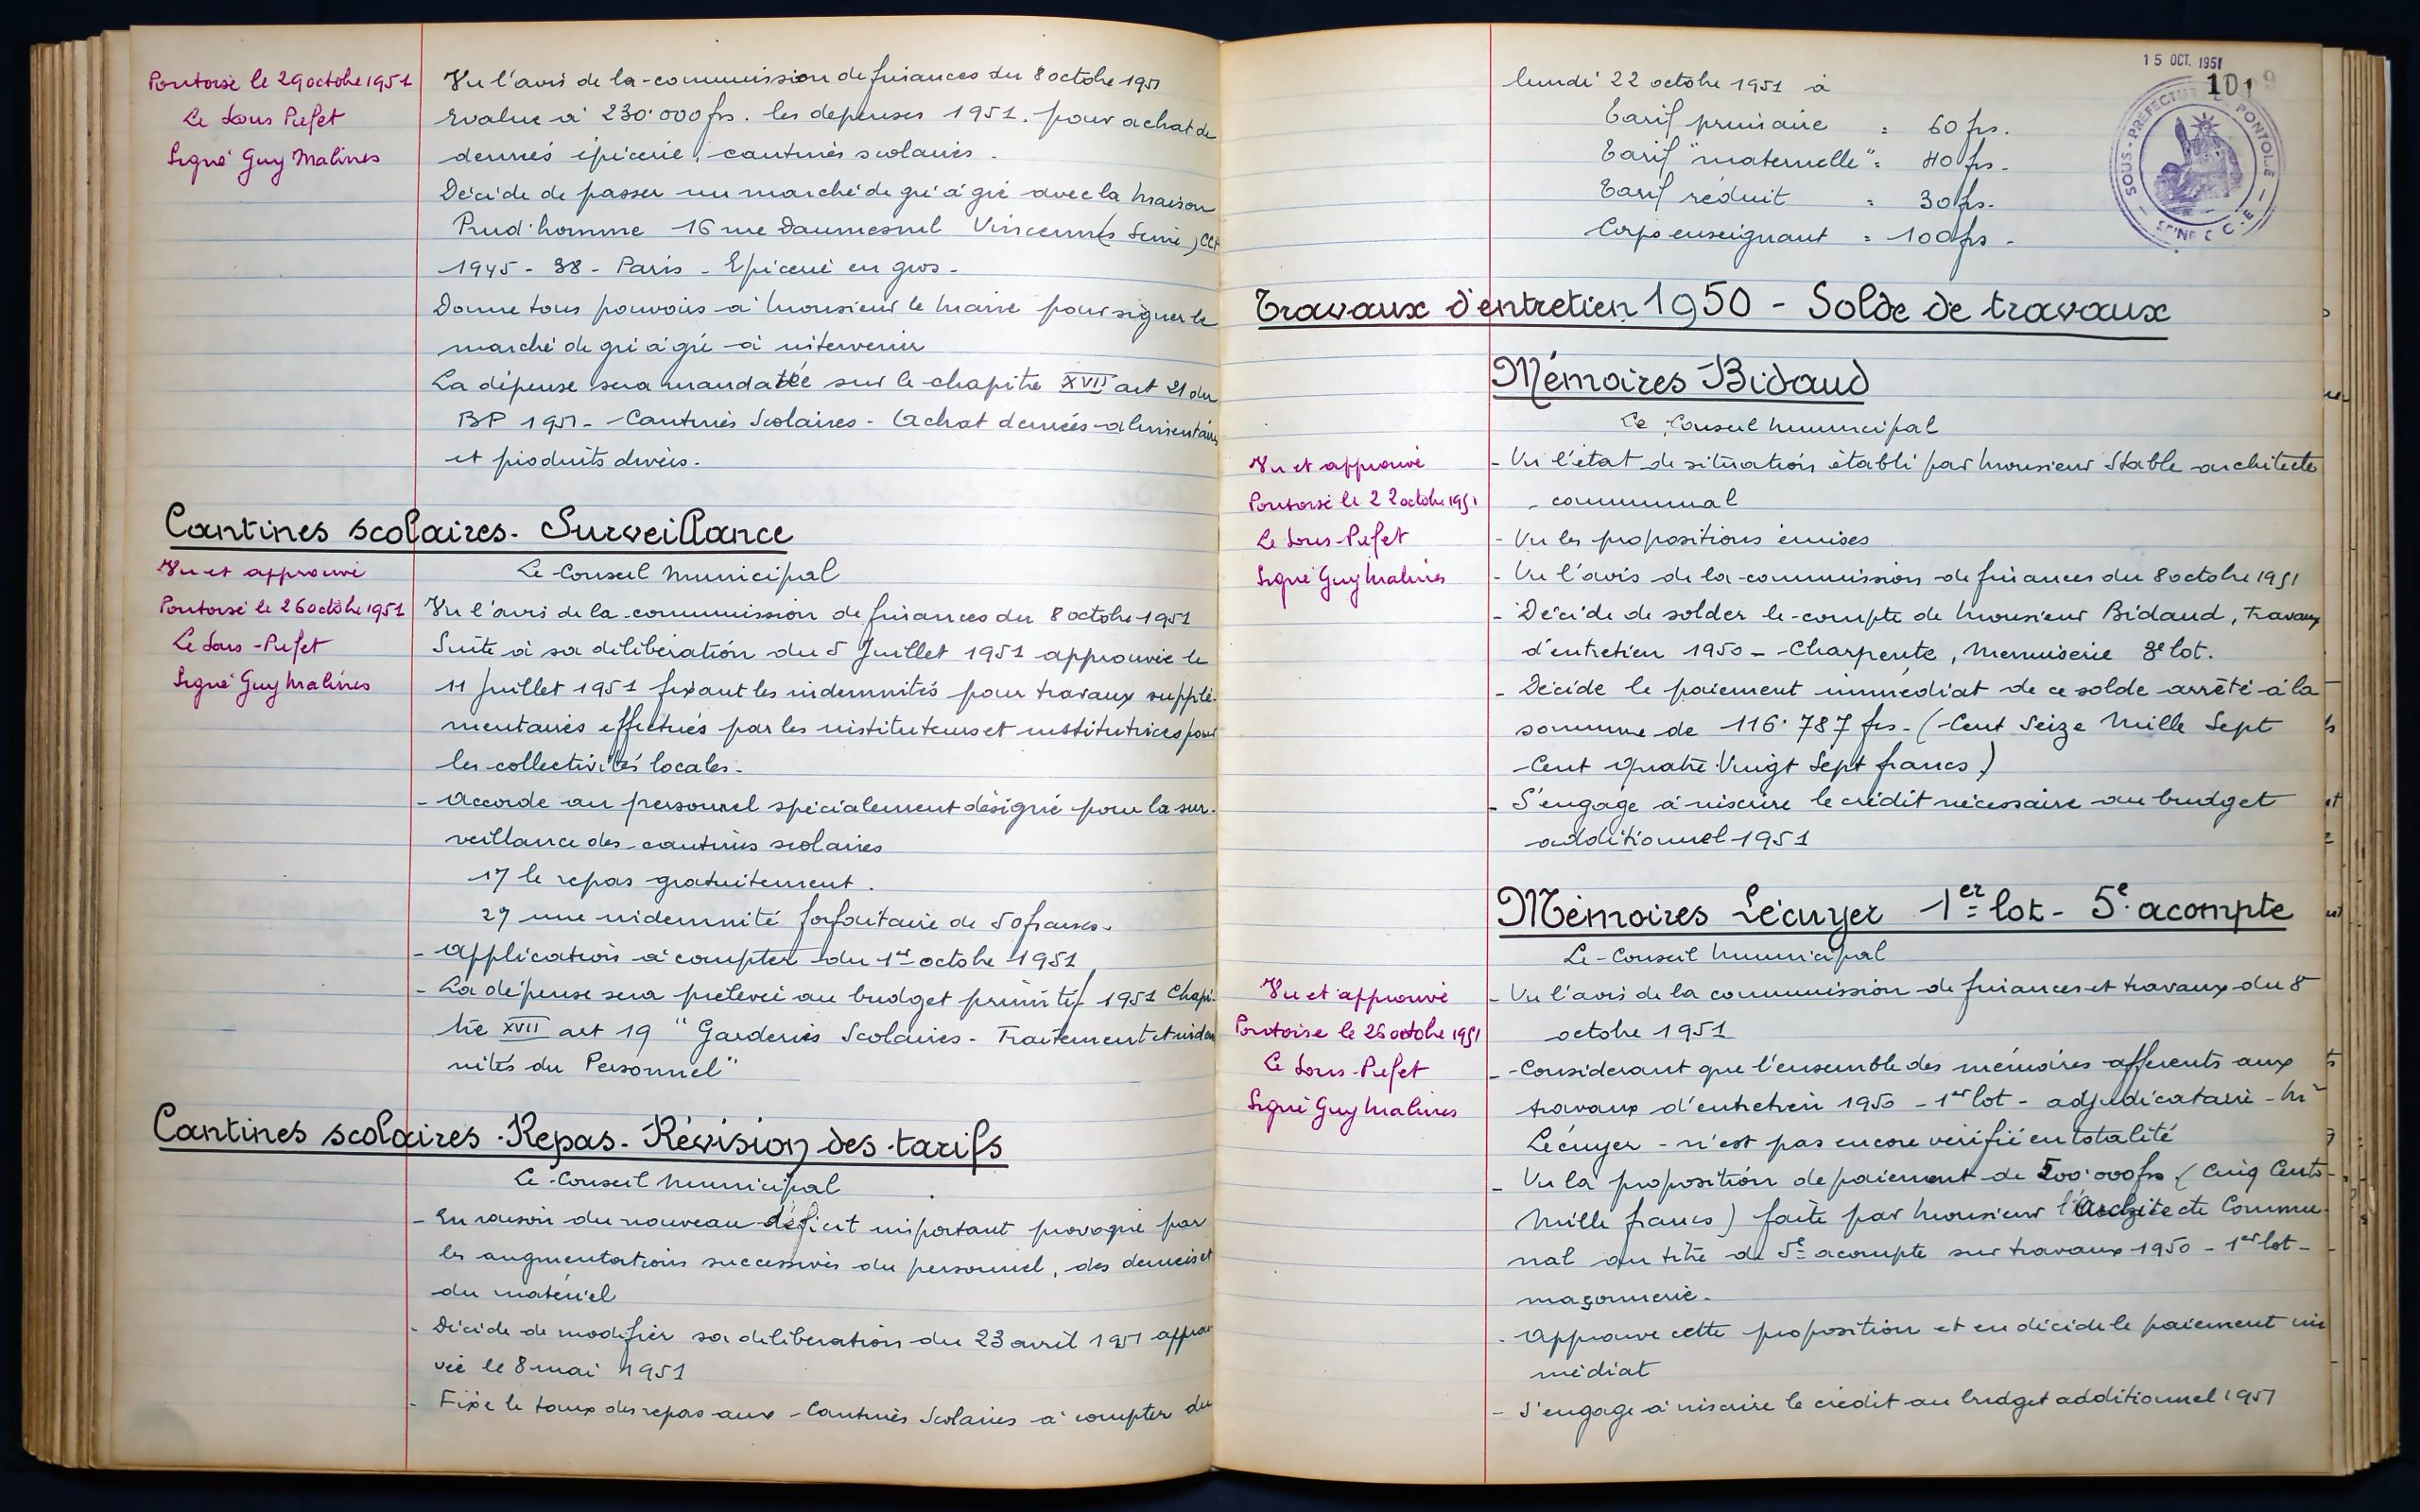 Pontoise le 29 octobre 1951
Le Sous Prefet
Signé Guy Malines
Vu l'avis de la commission de finances du 8 octobre 1951
Evalue à 230.000 frs. les dépenses 1951. pour achat de
denrées épicerie, cantines scolaires.
Décide de passer un marché de gré à gré avec la Maison
Prud'homme 16 rue Daumesnil Vincennes (Seine) CCP
1945-38-Paris - Epicerie en gros-
Donne tous pouvoirs à Monsieur le Maire pour signer le
marché de gré à gré à intervenir
La dépense sera mandatée sur le chapitre XVII art 21 du
BP 1951- Cantines Scolaires- Achat denrées alimentaires
et produits divers.
Cantines scolaires- Surveillance
Vu et approuvé
Pontoise le 26 octobre 1951
Le Sous-Prefet
Signé Guy Malines
Le Conseil Municipal
Vu l'avis de la commission de finances du 8 octobre 1951
Suite à sa délibération du 5 Juillet 1951 approuvée le
11 Juillet 1951 fixant les indemnités pour travaux supplé-
mentaires effectués par les instituteurs et institutrices pour
les collectivités locales-
- Accorde au personnel spécialement désigné pour la sur-
veillance des cantines scolaires
1°/ le repas gratuitement.
2°/ une indemnité forfaitaire de 50 francs.
- Application à compter du 1er octobre 1951
- La dépense sera prélevée au budget primitif 1951 Chapi-
tre XVII art 19 "Garderies Scolaires- Traitement et indem
nités du Personnel"
Cantines scolaires- Repas- Révision des tarifs
Le Conseil Municipal
- En raison du nouveau déficit important provoqué par
les augmentations successives du personnel, des denrées et
du matériel
- Décide de modifier sa délibération du 23 avril 1951 approu
vée le 8 mai 1951
- Fixe le taux des repas aux Cantines Scolaires à compter du
15 OCT. 1951
101
SOUS-PREFECTURE DE PONTOISE
SEINE & OISE
lundi 22 octobre 1951 à
Tarif primaire : 60 frs.
Tarif "maternelle" : 40 frs-
Tarif réduit : 30 frs-
Corps enseignant : 100 frs-
Travaux d'entretien 1950 - Solde de travaux
Mémoires Bidaud
Le Conseil Municipal
Vu et approuvé
Pontoise le 22 octobre 1951
Le Sous-Prefet
Signé Guy Malines
- Vu l'état de situation établi par Monsieur Stable architecte
communal
- Vu les propositions émises
- Vu l'avis de la commission de finances du 8 octobre 1951
- Décide de solder le compte de Monsieur Bidaud, travaux
d'entretien 1950- Charpente, Menuiserie 3e lot.
- Décide le paiement immédiat de ce solde arrêté à la
somme de 116.787 frs- (Cent Seize Mille Sept
Cent Quatre Vingt Sept francs)
- S'engage à inscrire le crédit nécessaire au budget
additionnel 1951
Mémoires Lécuyer 1er lot- 5e acompte
Le Conseil Municipal
Vu et approuvé
Pontoise le 26 octobre 1951
Le Sous-Prefet
Signé Guy Malines
- Vu l'avis de la commission de finances et travaux du 8
octobre 1951
- Considerant que l'ensemble des mémoires afferents aux
travaux d'entretien 1950 - 1er lot- adjudicataire Mr
Lécuyer - n'est pas encore vérifié en totalité
- Vu la proposition de paiement de 500.000 frs (Cinq Cents
Mille francs) faite par Monsieur l'Architecte Commu-
nal au titre du 5e acompte sur travaux 1950 - 1er lot-
maçonnerie.
- Approuve cette proposition et en décide le paiement im
médiat
- S'engage à inscrire le crédit au budget additionnel 1951